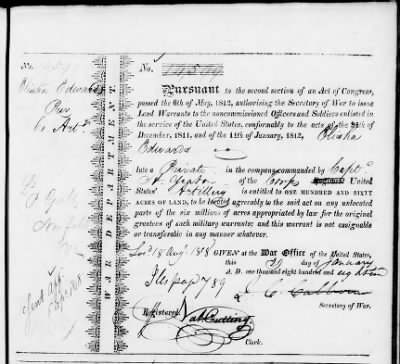 No.
No. 14899
Elisha Edwards
WAR DEPARTMENT
Pursuant to the second section of an Act of Congress,
passed the 6th of May, 1812, authorising the Secretary of War to issue
Land Warrants to the noncommissioned Officers and Soldiers enlisted in
the service of the United States, conformably to the acts of the 24th of
December, 1811, and of the 11th of January, 1812, Elisha
Edwards
late a Private in the company commanded by Capt.
of the Corps Regiment United
States' Artillery is entitled to ONE HUNDRED AND SIXTY
ACRES OF LAND, to be located agreeably to the said act on any unlocated
parts of the six millions of acres appropriated by law for the original
grantees of such military warrants; and this warrant is not assignable
or transferable in any manner whatever.
GIVEN at the War Office of the United States,
this 29 day of January
A. D. one thousand eight hundred and eighteen
J. C. Calhoun
Secretary of War.
Registered,
Nat Cutting
Clerk.